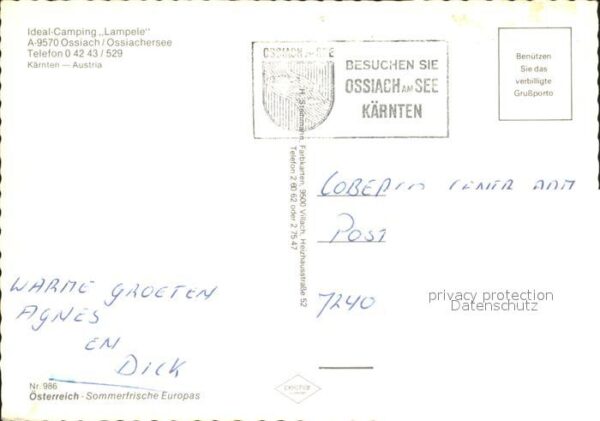 Ideal-Camping „Lampele"
A-9570 Ossiach / Ossiachersee
Telefon 0 42 43 / 529
Kärnten — Austria
OSSIACH AM SEE
BESUCHEN SIE
OSSIACH AM SEE
KÄRNTEN
Benützen
Sie das
verbilligte
Grußporto
Farbkarten, 9500 Villach, Heizhausstraße 52
Telefon 2 60 62 oder 2 75 47
POST
7240
privacy protection
Datenschutz
WARME GROETEN
AGNES
EN
DICK
Nr. 986
Österreich - Sommerfrische Europas